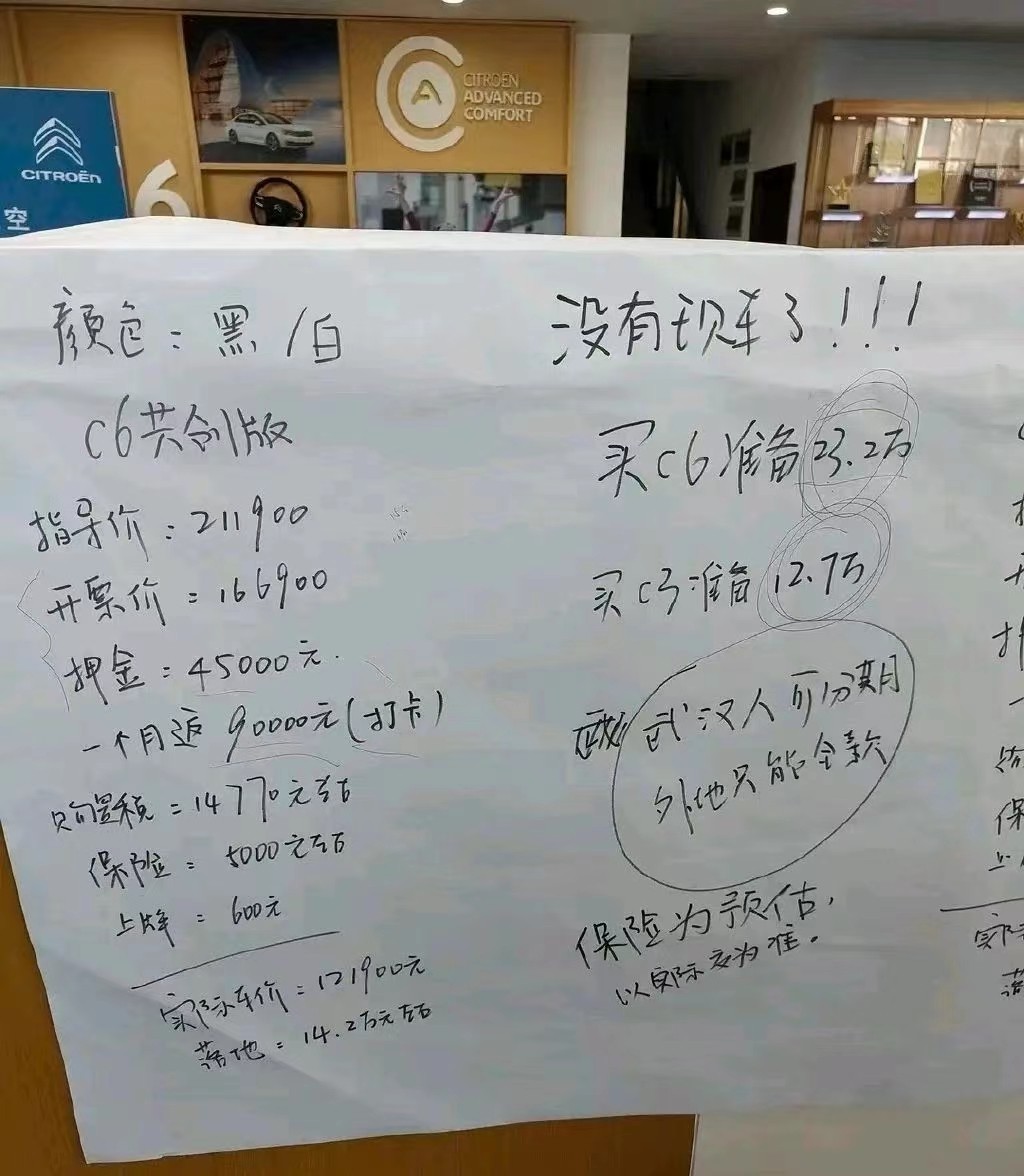 CITROËN
空
6
CITROËN
ADVANCED
COMFORT
颜色：黑/白
C6共创版
指导价：211900
开票价=166900
押金：45000元.
一个月返 90000元(打卡)
购置税=14770元左右
保险=5000元左右
上牌=600元
实际车价=121900元
落地=14.2万元左右
没有现车了!!!
买C6准备23.2万
买C3准备12.7万
武汉人可分期
外地只能全款
保险为预估,
以实际交为准。